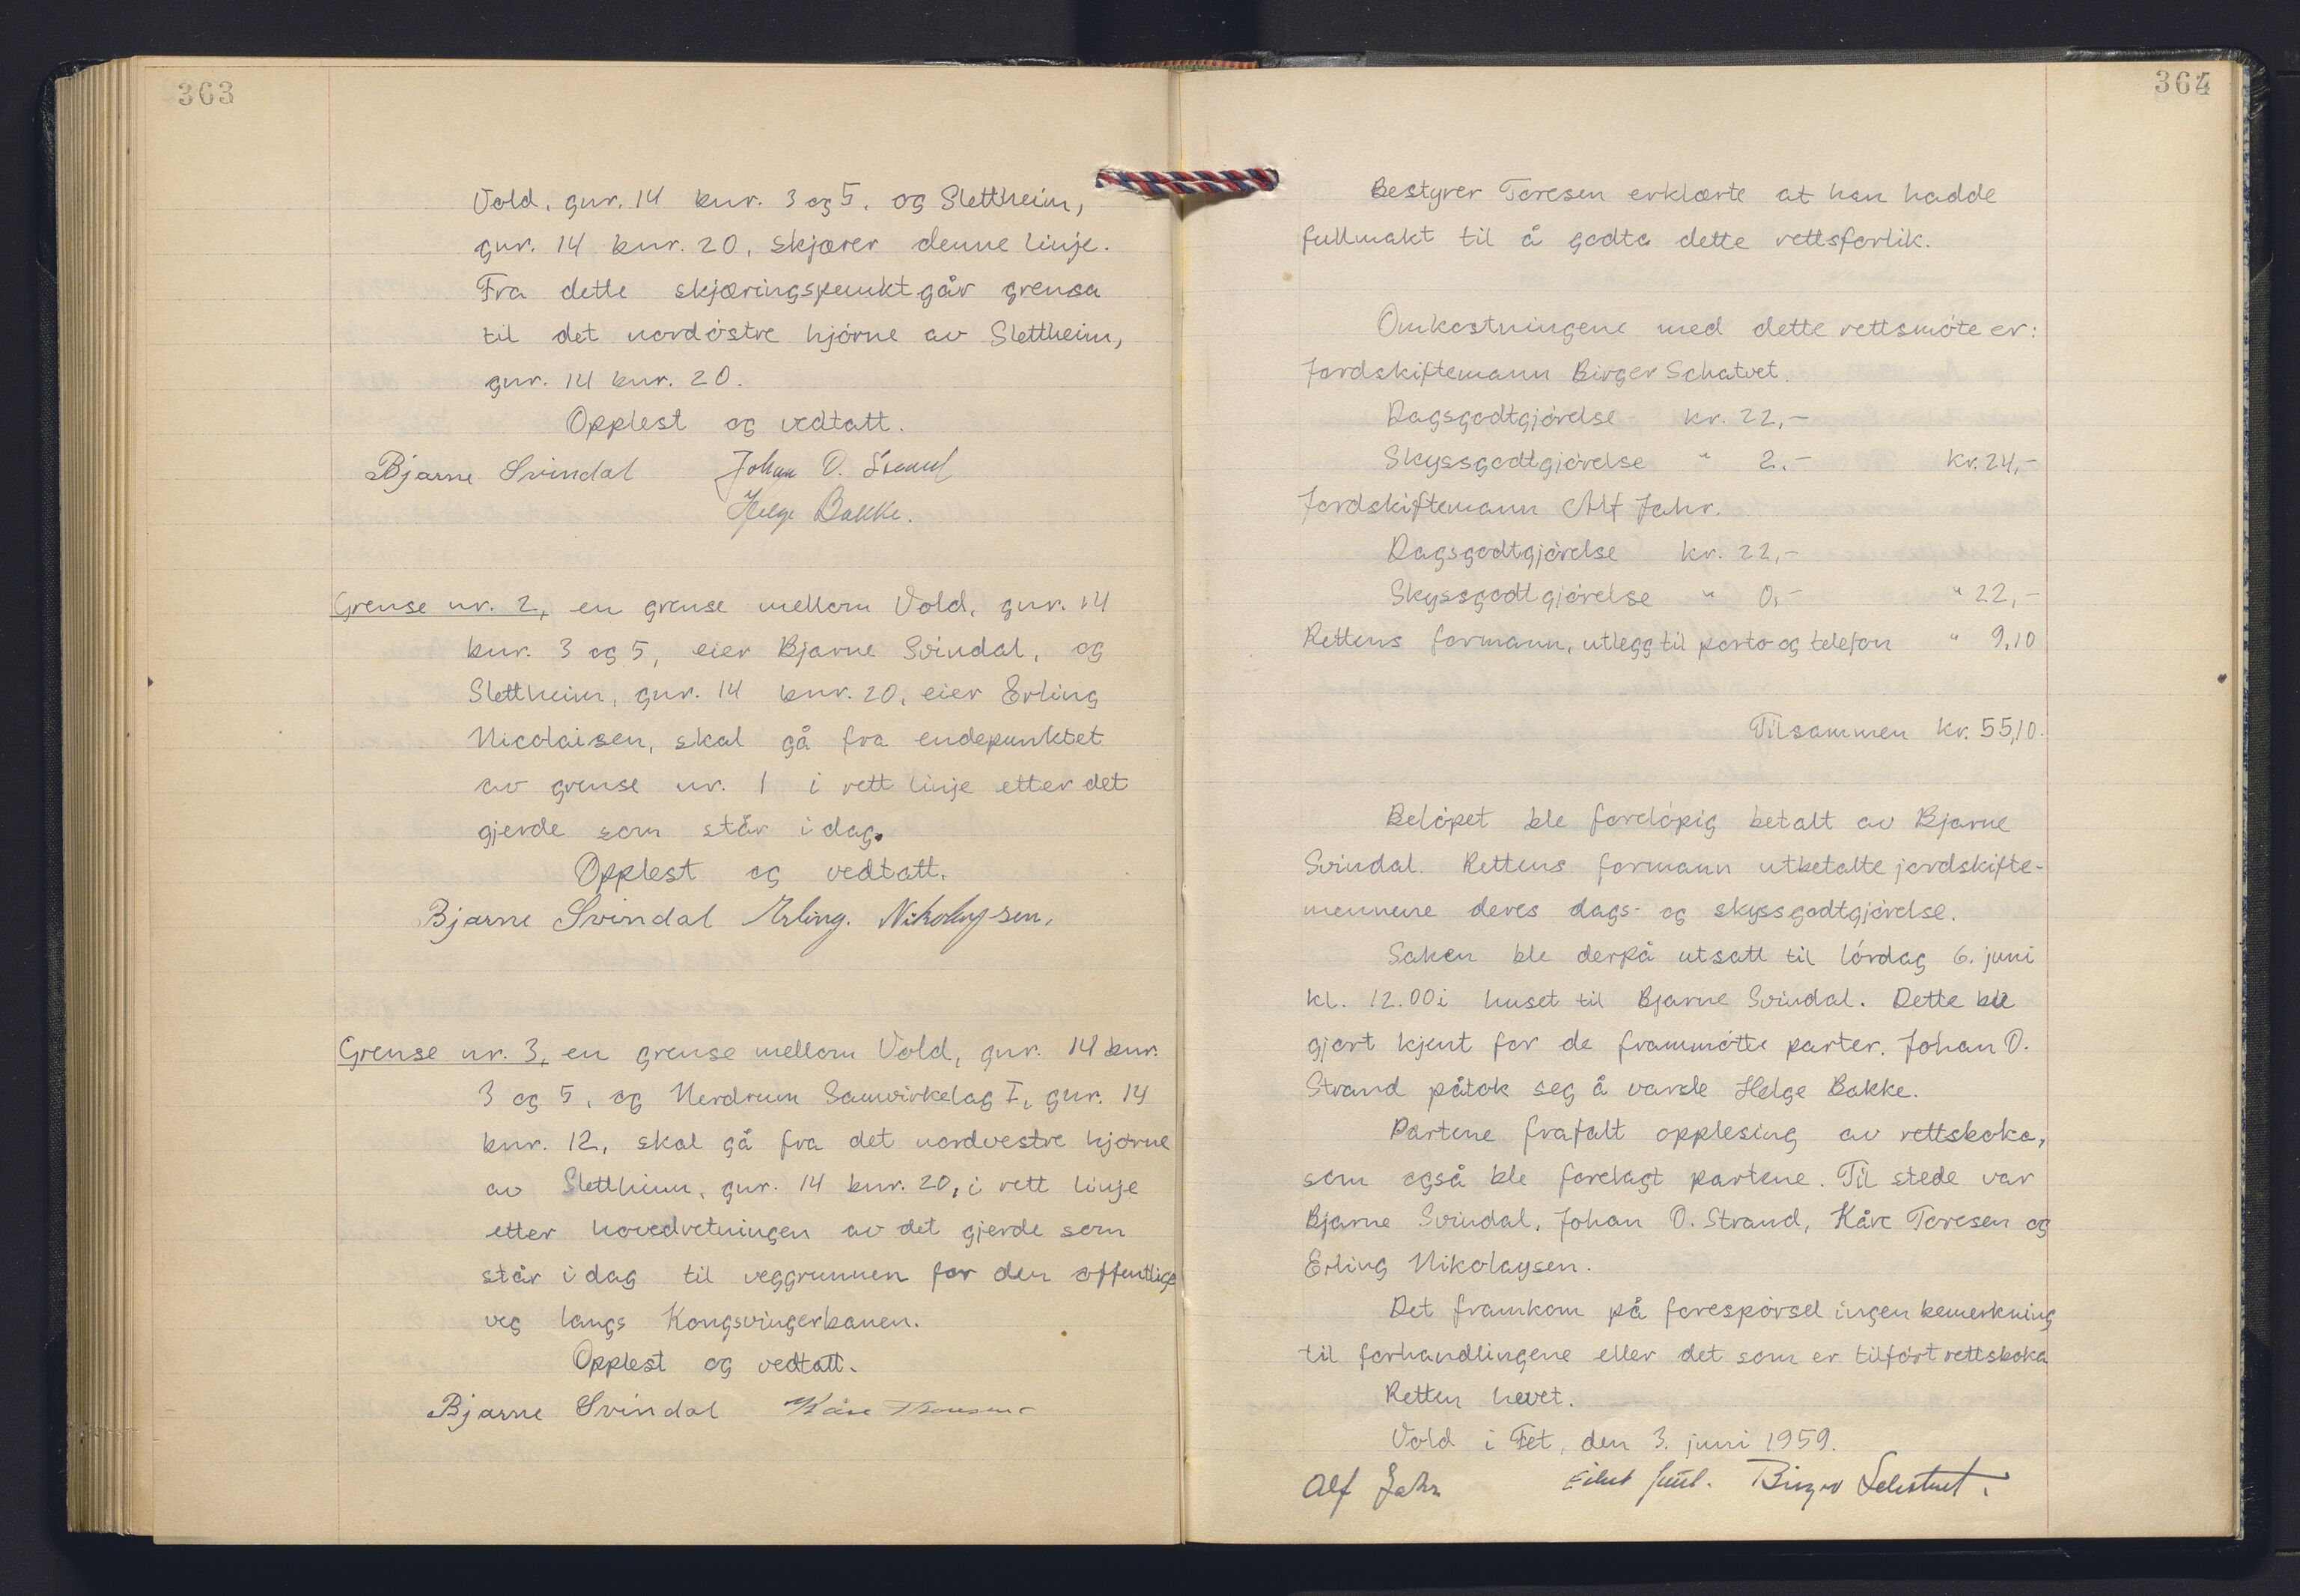 363
Vold, gnr. 14 bnr. 3 og 5, og Slettheim,
gnr. 14 bnr. 20, skjærer denne linje.
Fra dette skjæringspunkt går grensa
til det nordöstre hjörne av Slettheim,
gnr. 14 bnr. 20.
Opplest og vedtatt.
Bjarne Svindal Johan O. Strand
Helge Bakke.
Grense nr. 2, en grense mellom Vold, gnr. 14
bnr. 3 og 5, eier Bjarne Svindal, og
Slettheim, gnr. 14 bnr. 20, eier Erling
Nicolaisen, skal gå fra endepunktet
av grense nr. 1 i rett linje etter det
gjerde som står i dag.
Opplest og vedtatt.
Bjarne Svindal Erling. Nikolaysen.
Grense nr. 3, en grense mellom Vold, gnr. 14 bnr.
3 og 5, og Nerdrum Samvirkelag I, gnr. 14
bnr. 12, skal gå fra det nordvestre hjörne
av Slettheim, gnr. 14 bnr. 20, i rett linje
etter hovedretningen av det gjerde som
står i dag til veggrunnen for den offentlige
veg langs Kongsvingerbanen.
Opplest og vedtatt.
Bjarne Svindal Kåre
364
Bestyrer Toresen erklærte at han hadde
fullmakt til å godta dette rettsforlik.
Omkostningene med dette rettsmöte er:
Jordskiftemann Birger Schatvet.
Dagsgodtgjörelse kr. 22,-
Skyssgodtgjörelse " 2,- kr. 24,-
Jordskiftemann Alf Jahr.
Dagsgodtgjörelse kr. 22,-
Skyssgodtgjörelse " 0,- " 22,-
Rettens formann, utlegg til porto og telefon " 9,10
Tilsammen kr. 55,10.
Belöpet ble forelöpig betalt av Bjarne
Svindal. Rettens formann utbetalte jordskifte-
mennene deres dags- og skyssgodtgjörelse.
Saken ble derpå utsatt til lördag 6. juni
kl. 12.00 i huset til Bjarne Svindal. Dette ble
gjort kjent for de frammötte parter. Johan O.
Strand påtok seg å varsle Helge Bakke.
Partene frafalt opplesing av rettsboka,
som også ble forelagt partene. Til stede var
Bjarne Svindal, Johan O. Strand, Kåre Toresen og
Erling Nikolaysen.
Det framkom på forespörsel ingen bemerkning
til forhandlingene eller det som er tilfört rettsboka
Retten hevet.
Vold i Fet, den 3. juni 1959.
Alf Jahr Birger Schatvet.